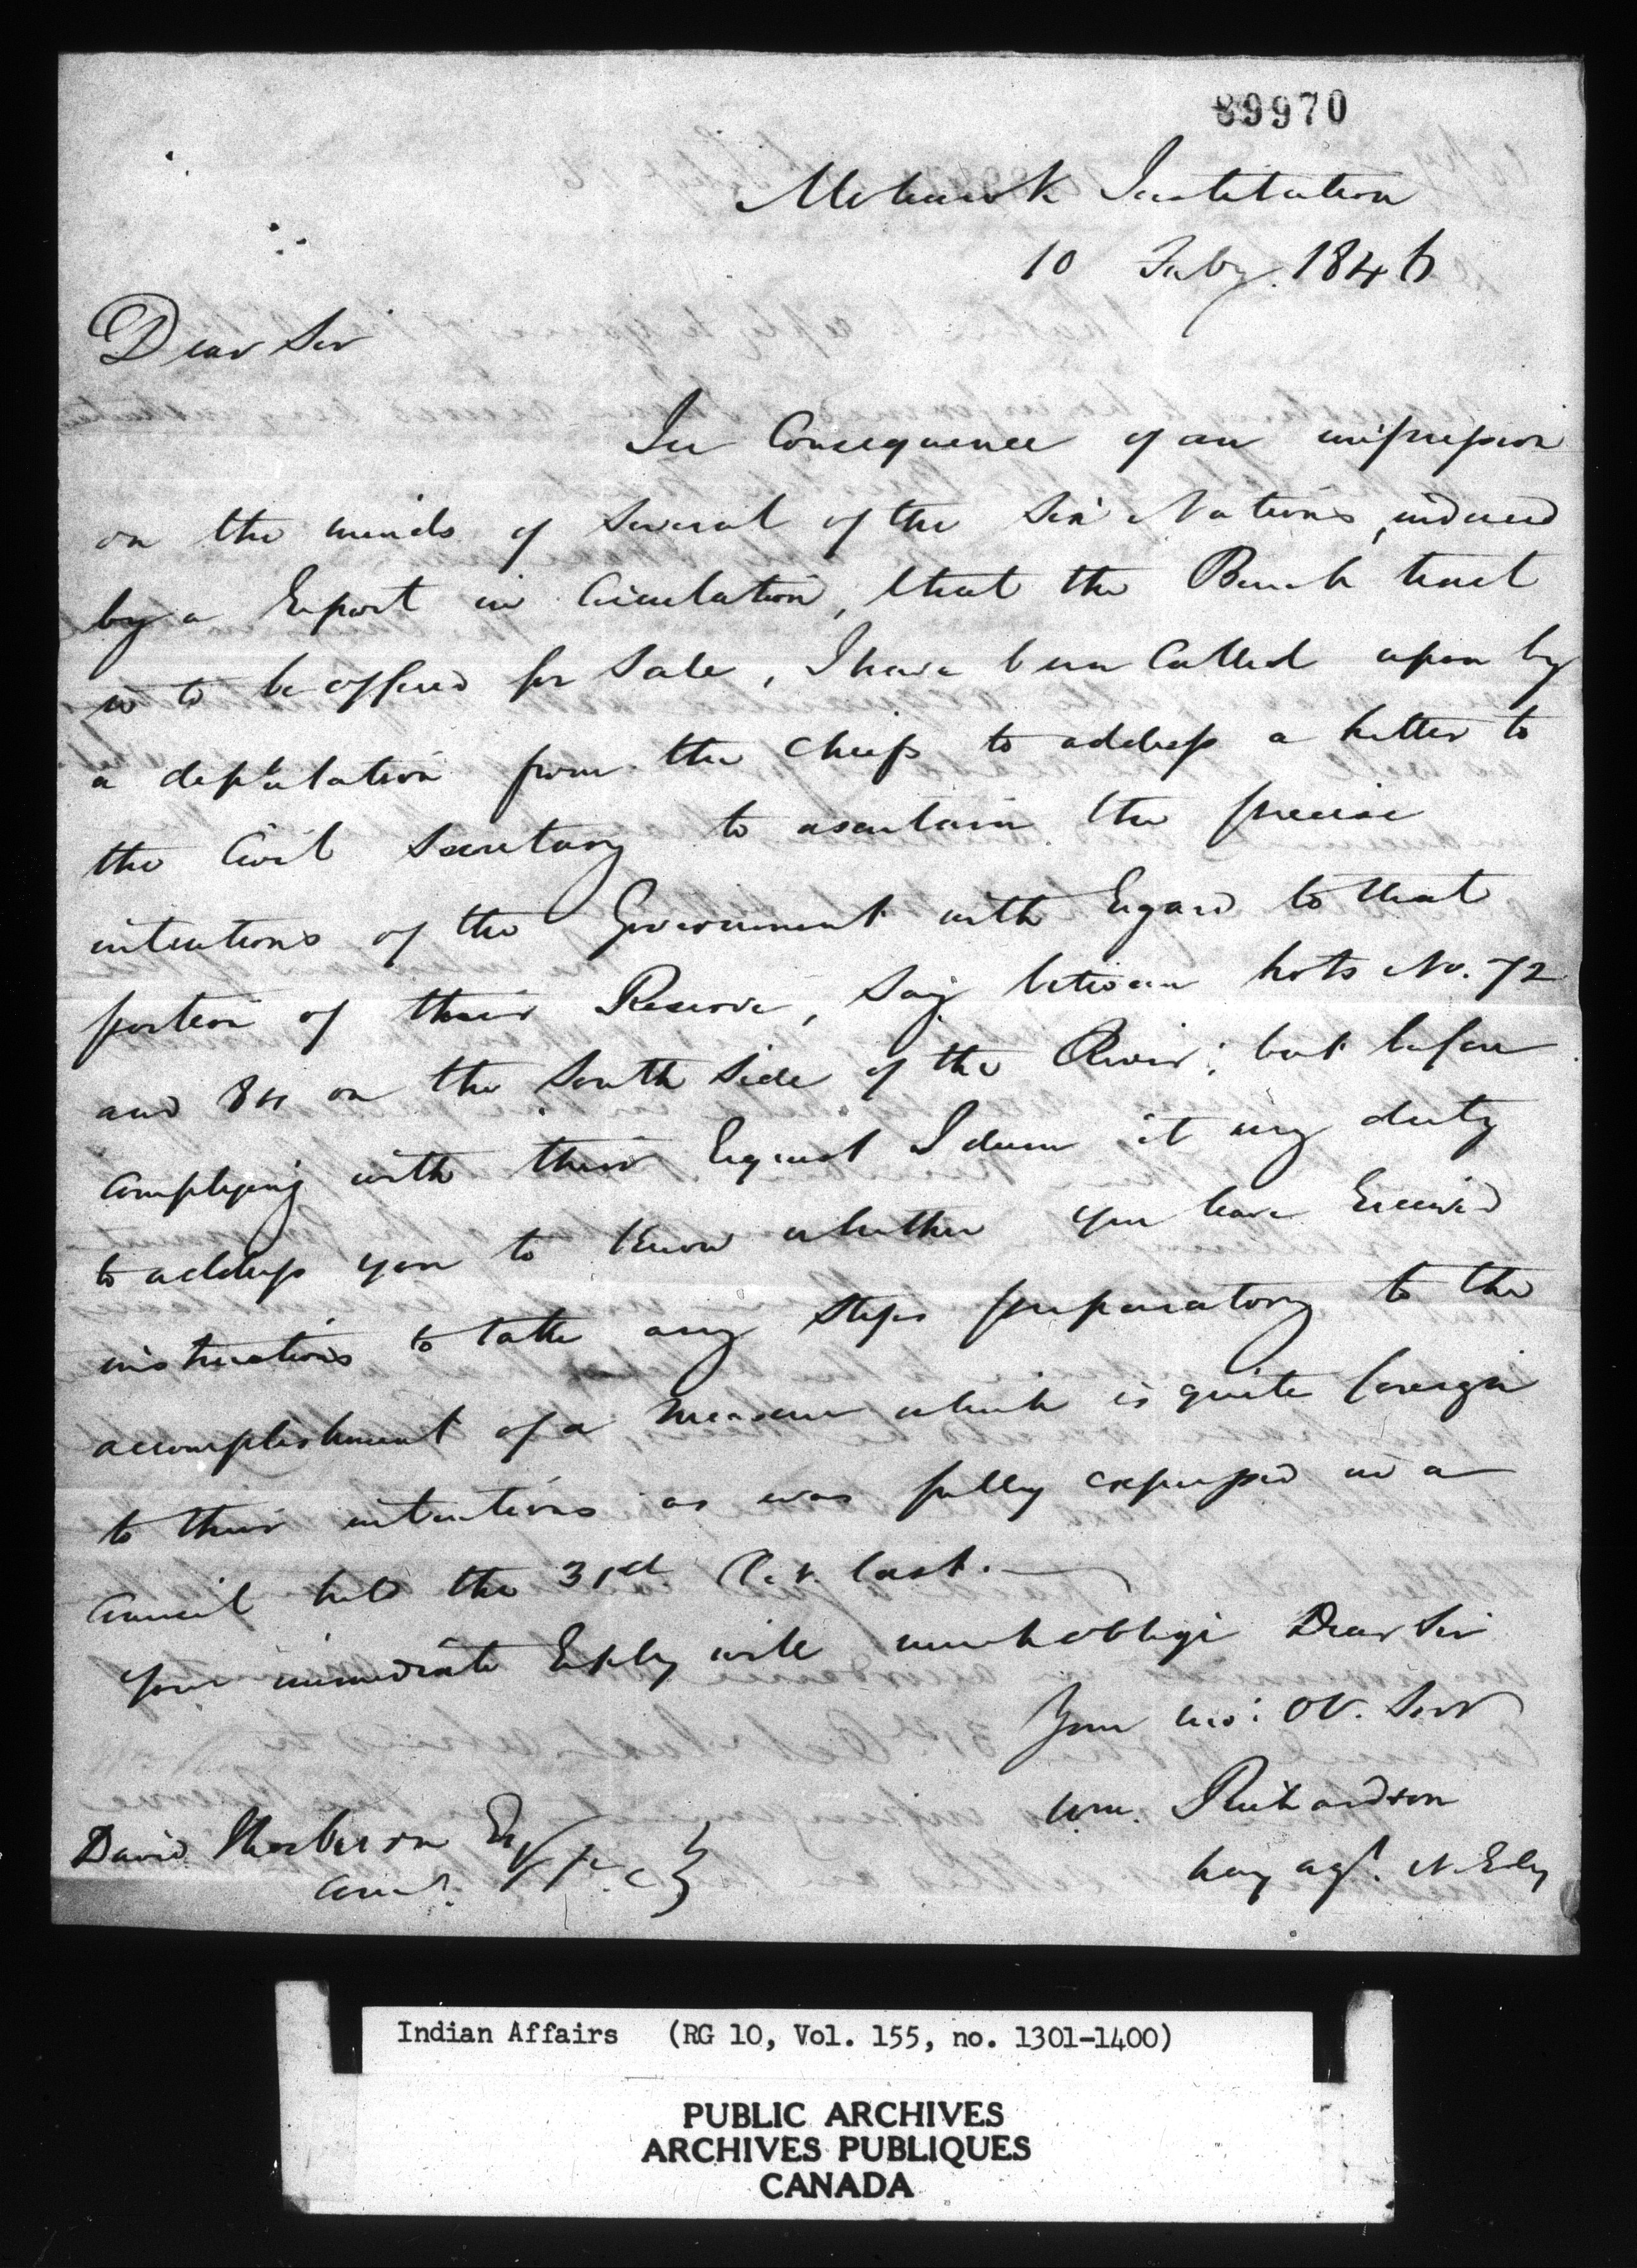 89970
Mohawk Institution
10 Feby. 1846
Dear Sir
In Consequence of an impression
on the minds of several of the Six Nations, induced
by a Report in Circulation, that the Burch tract
is to be offered for Sale, I have been Called upon by
a deputation from the Chiefs to address a Letter to
the Civil Secretary to ascertain the precise
intentions of the Government with Regard to that
portion of their Reserve, Say between Lots No. 72
and 84 on the South Side of the River; but before
Complying with their Request I deem it my duty
to address you to Know whether you have Received
instructions to take any Steps preparatory to the
accomplishment of a Measure which is quite foreign
to their intentions as was fully expressed in a
Council held the 31st Oct. last.
Your immediate Reply will much oblige Dear Sir
Your Mo: Ob. Servt
Wm. Richardson
Lay agt. N. E. Cy
David Thorburn Esq
Comr.
Indian Affairs (RG 10, Vol. 155, no. 1301-1400)
PUBLIC ARCHIVES
ARCHIVES PUBLIQUES
CANADA